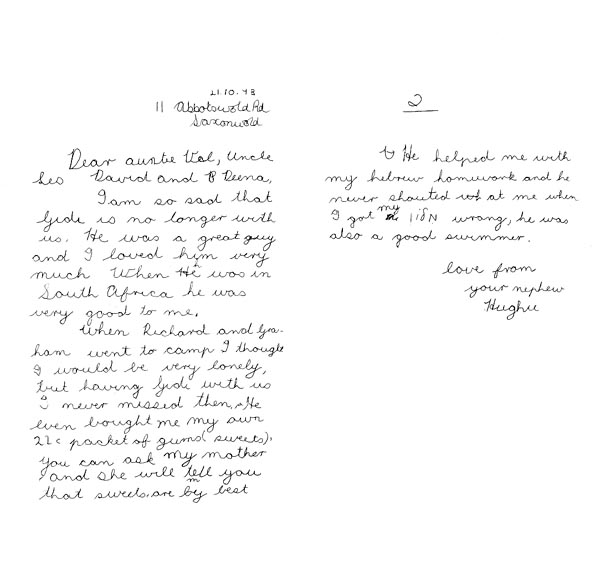 21.10.73
11 Abbotswold Rd
Saxonwold
Dear auntie Val, Uncle
Leo David and Deena,
I am so sad that
Gide is no longer with
us. He was a great guy
and I loved him very
much When He was in
South Africa he was
very good to me.
When Richard and Gra-
ham went to camp I thought
I would be very lonely,
but having Gide with us
I never missed them, He
even bought me my own
22c packet of gums (sweets).
You can ask my mother
and she will tell you
that sweets are my best
2
He helped me with
my hebrew homework and he
never shouted at me when
I got my wrong, he was
also a good swimmer.
love from
your nephew
Hughie